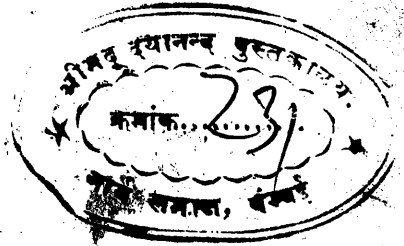 श्रीमद् दयानन्द पुस्तकालय.
क्रमांक..........
आर्य समाज, बंम्बई